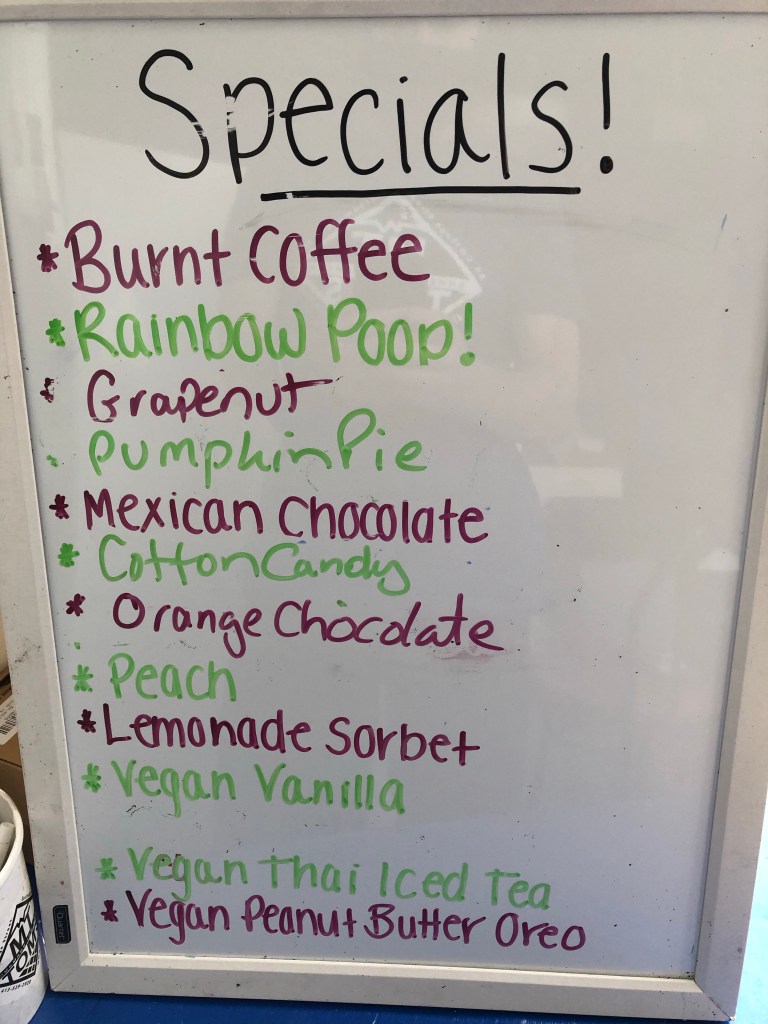 Specials!
* Burnt Coffee
* Rainbow Poop!
* Grapenut
· Pumpkin Pie
* Mexican Chocolate
* Cotton Candy
* Orange Chocolate
* Peach
* Lemonade Sorbet
* Vegan Vanilla
* Vegan Thai Iced Tea
* Vegan Peanut Butter Oreo
Quartet